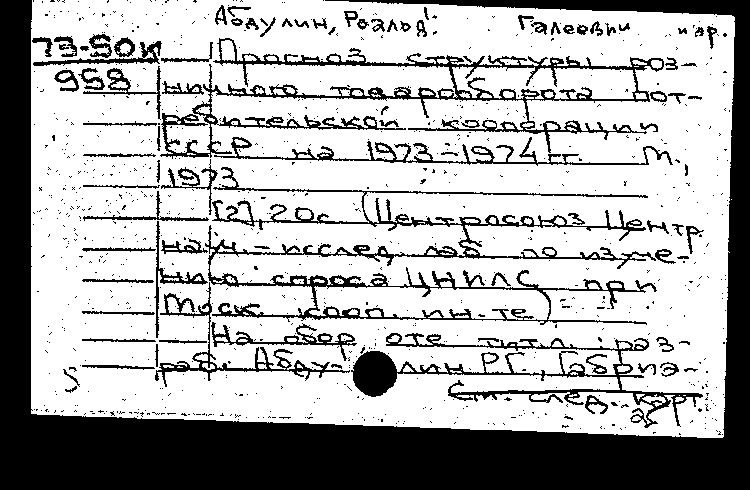 Абдулин, Роальд Галеевич и др.
73-50к
958
Прогноз структуры роз-
ничного товарооборота пот-
ребительской кооперации
СССР на 1973-1974 гг. М.,
1973
[2], 20с (Центросоюз. Центр.
науч.-исслед. лаб по изуче-
нию спроса ЦНИЛС при
Моск. кооп. ин-те)
На обор. тит. л.: раз-
раб. Абду-лин Р.Г., Габриэ-
См. след. карт.
5